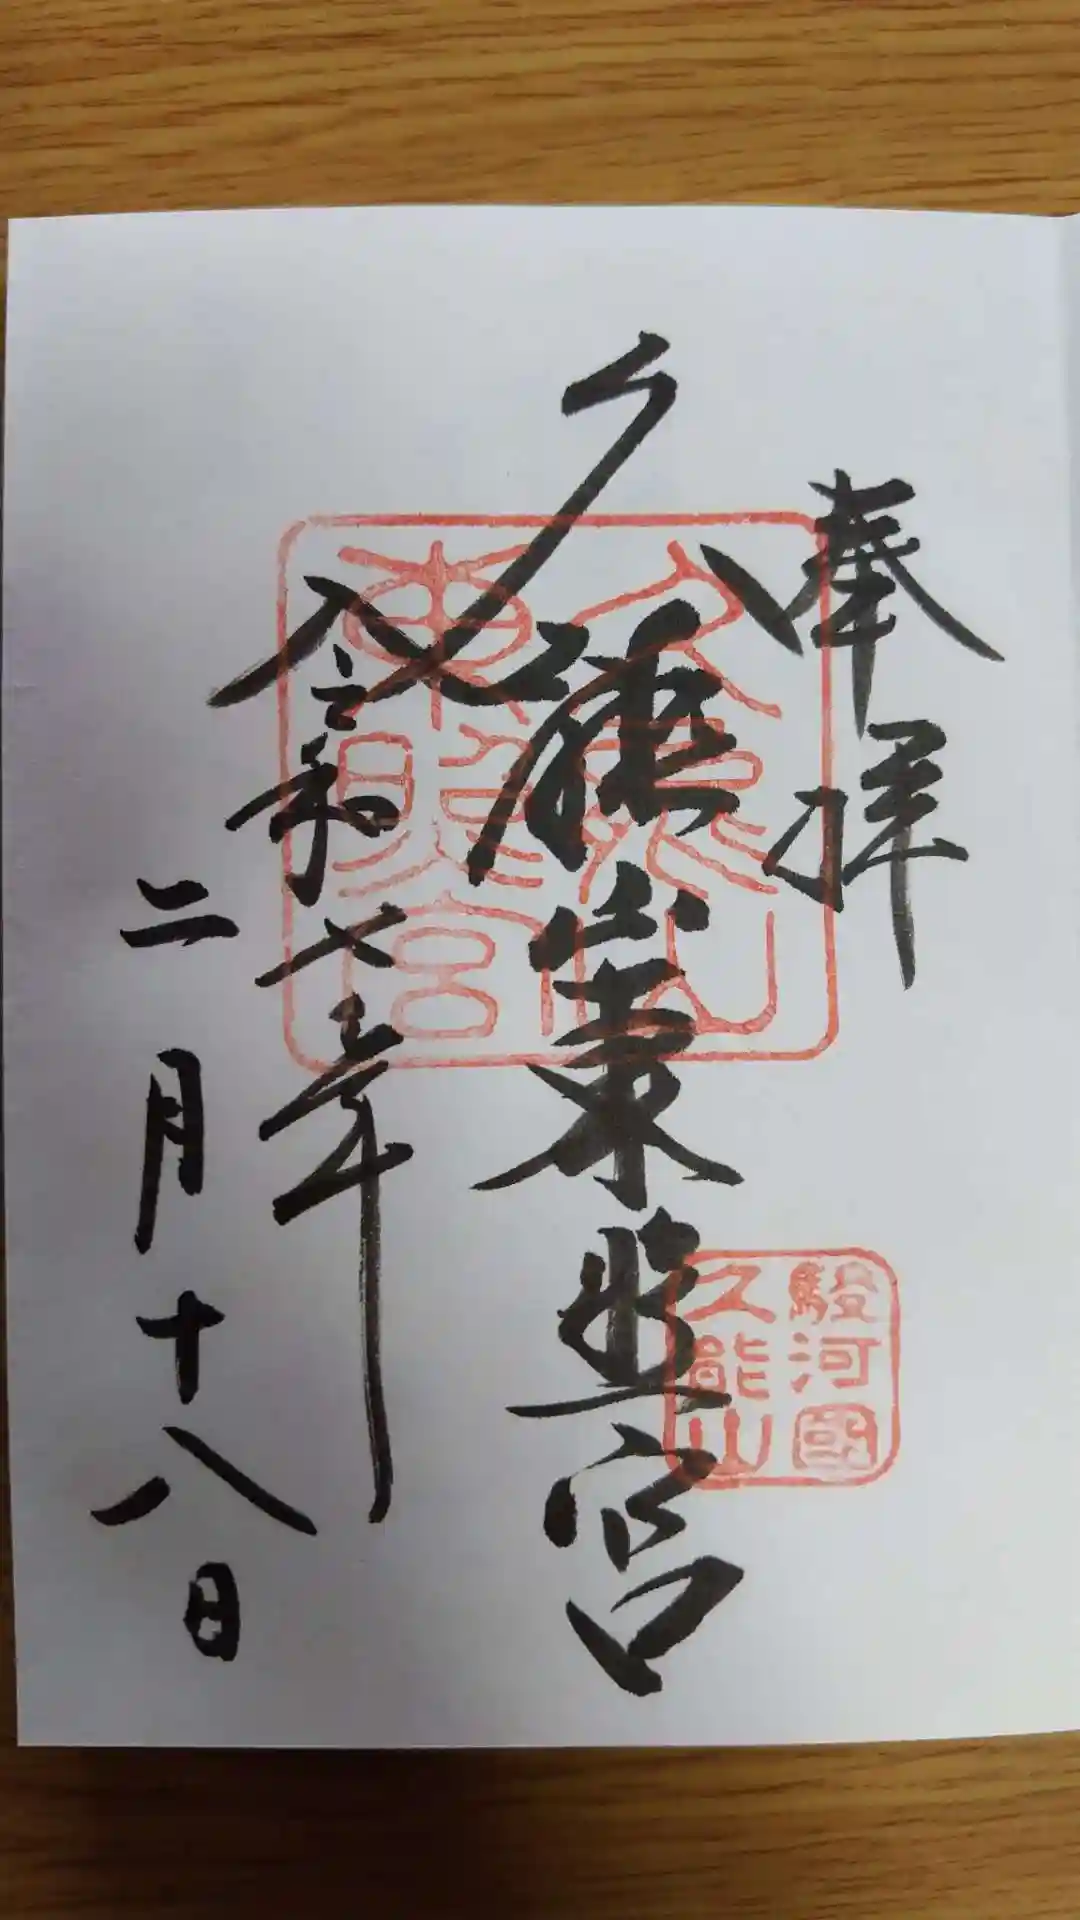 奉拝
久能山東照宮
令和七年
二月十八日
久能山
東照宮
駿河國
久能山